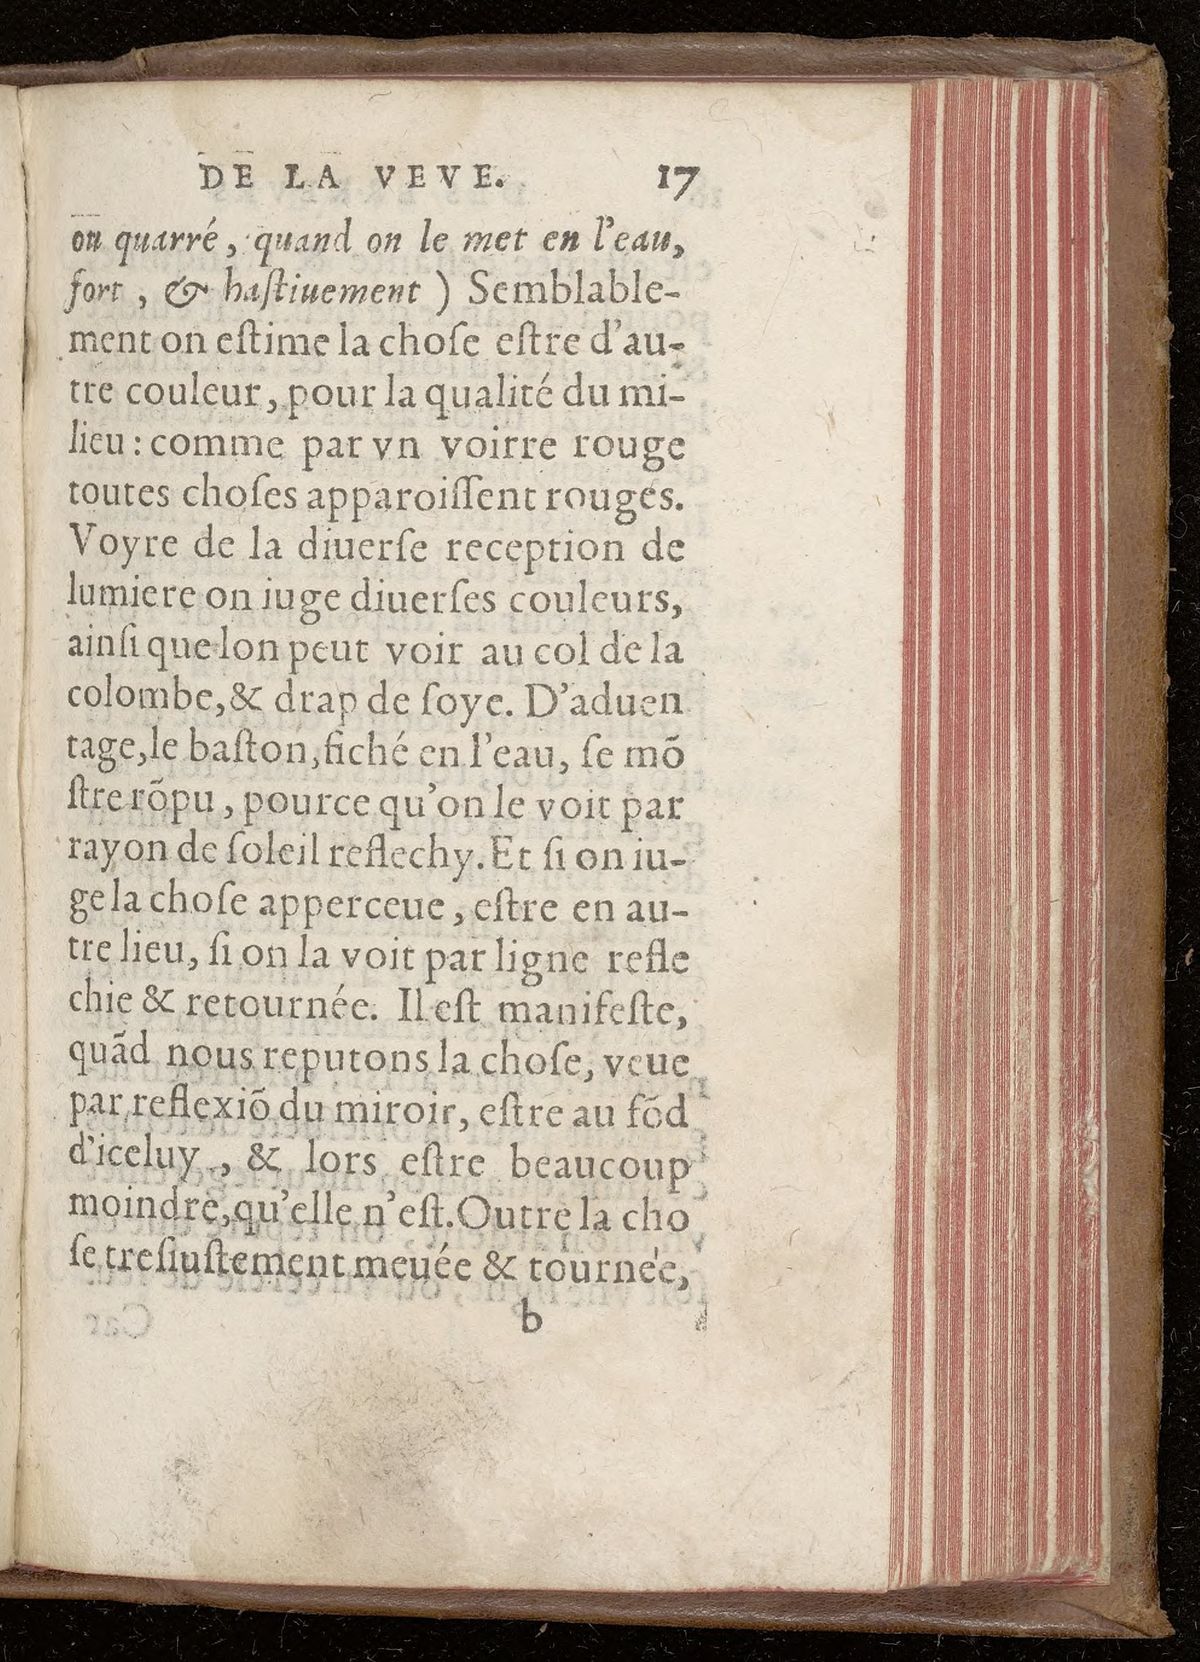 DE LA VEVE. 17
ou quarré, quand on le met en l'eau,
fort, & haſtiuement) Semblable-
ment on eſtime la choſe eſtre d'au-
tre couleur, pour la qualité du mi-
lieu: comme par vn voirre rouge
toutes choſes apparoiſſent rouges.
Voyre de la diuerſe reception de
lumiere on iuge diuerſes couleurs,
ainſi que lon peut voir au col de la
colombe, & drap de ſoye. D'aduen
tage, le baſton, fiché en l'eau, ſe mõ
ſtre rõpu, pource qu'on le voit par
rayon de ſoleil reflechy. Et ſi on iu-
ge la choſe apperceue, eſtre en au-
tre lieu, ſi on la voit par ligne refle
chie & retournée. Il eſt manifeſte,
quãd nous reputons la choſe, veue
par reflexiõ du miroir, eſtre au fõd
d'iceluy, & lors eſtre beaucoup
moindre, qu'elle n'eſt. Outre la cho
ſe treſiuſtement meuée & tournée,
b